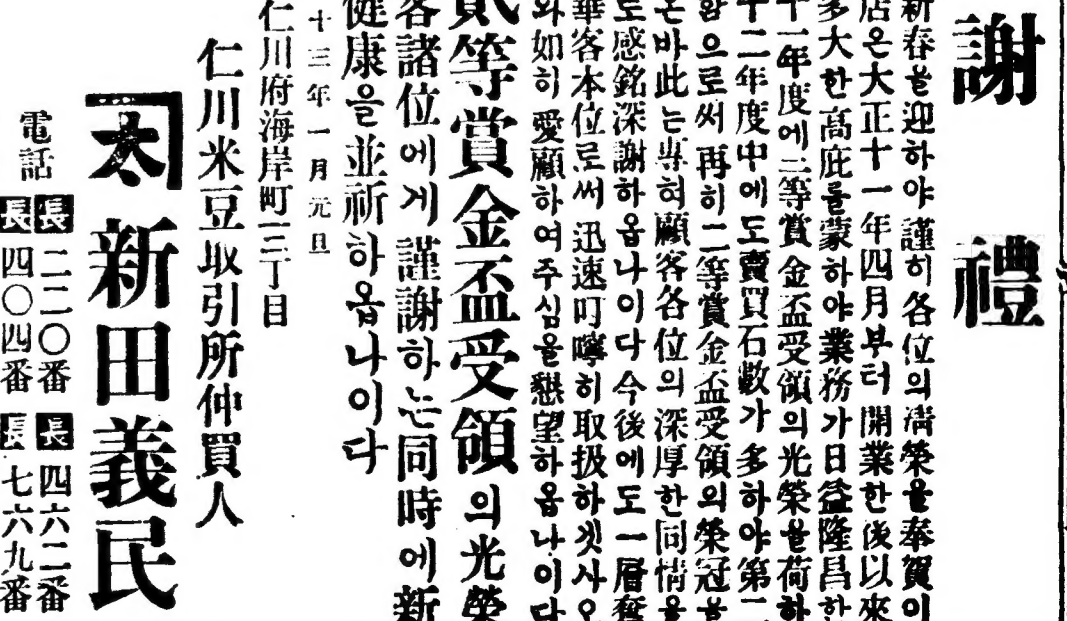 謝禮
新春을迎하야謹히各位의淸榮을奉賀이
店은大正十一年四月부터開業한後以來
多大한高庇를蒙하야業務가日益隆昌하
十一年度에二等賞金盃受領의光榮을荷하
十二年度中에도賣買石數가多하야第二
함으로써再히二等賞金盃受領의榮冠을
온바此는專혀顧客各位의深厚한同情을
도感銘深謝하옵나이다今後에도一層奮
華客本位로써迅速叮嚀히取扱하겟사오
와如히愛顧하여주심을懇望하옵나이다
貳等賞金盃受領의光榮
各諸位에게謹謝하는同時에新
健康을並祈하옵나이다
十三年一月元旦
仁川府海岸町二丁目
仁川米豆取引所仲買人
太 新田義民
電話
長二二〇番 長四六二番
長四〇四番 長七六九番